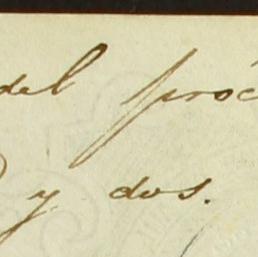 del próc
y dos.